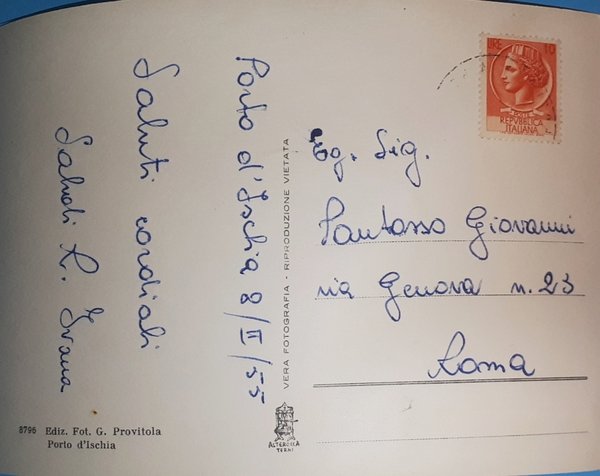 Porto d'Ischia 8/II/55
Saluti cordiali
Saluti R. Ivana
VERA FOTOGRAFIA - RIPRODUZIONE VIETATA
LIRE 10
POSTE
REPVBBLICA
ITALIANA
Eg. Sig.
Pantasso Giovanni
via Genova n. 23
Roma
8796 Ediz. Fot. G. Provitola
Porto d'Ischia
ASTEROCCA
TERNI